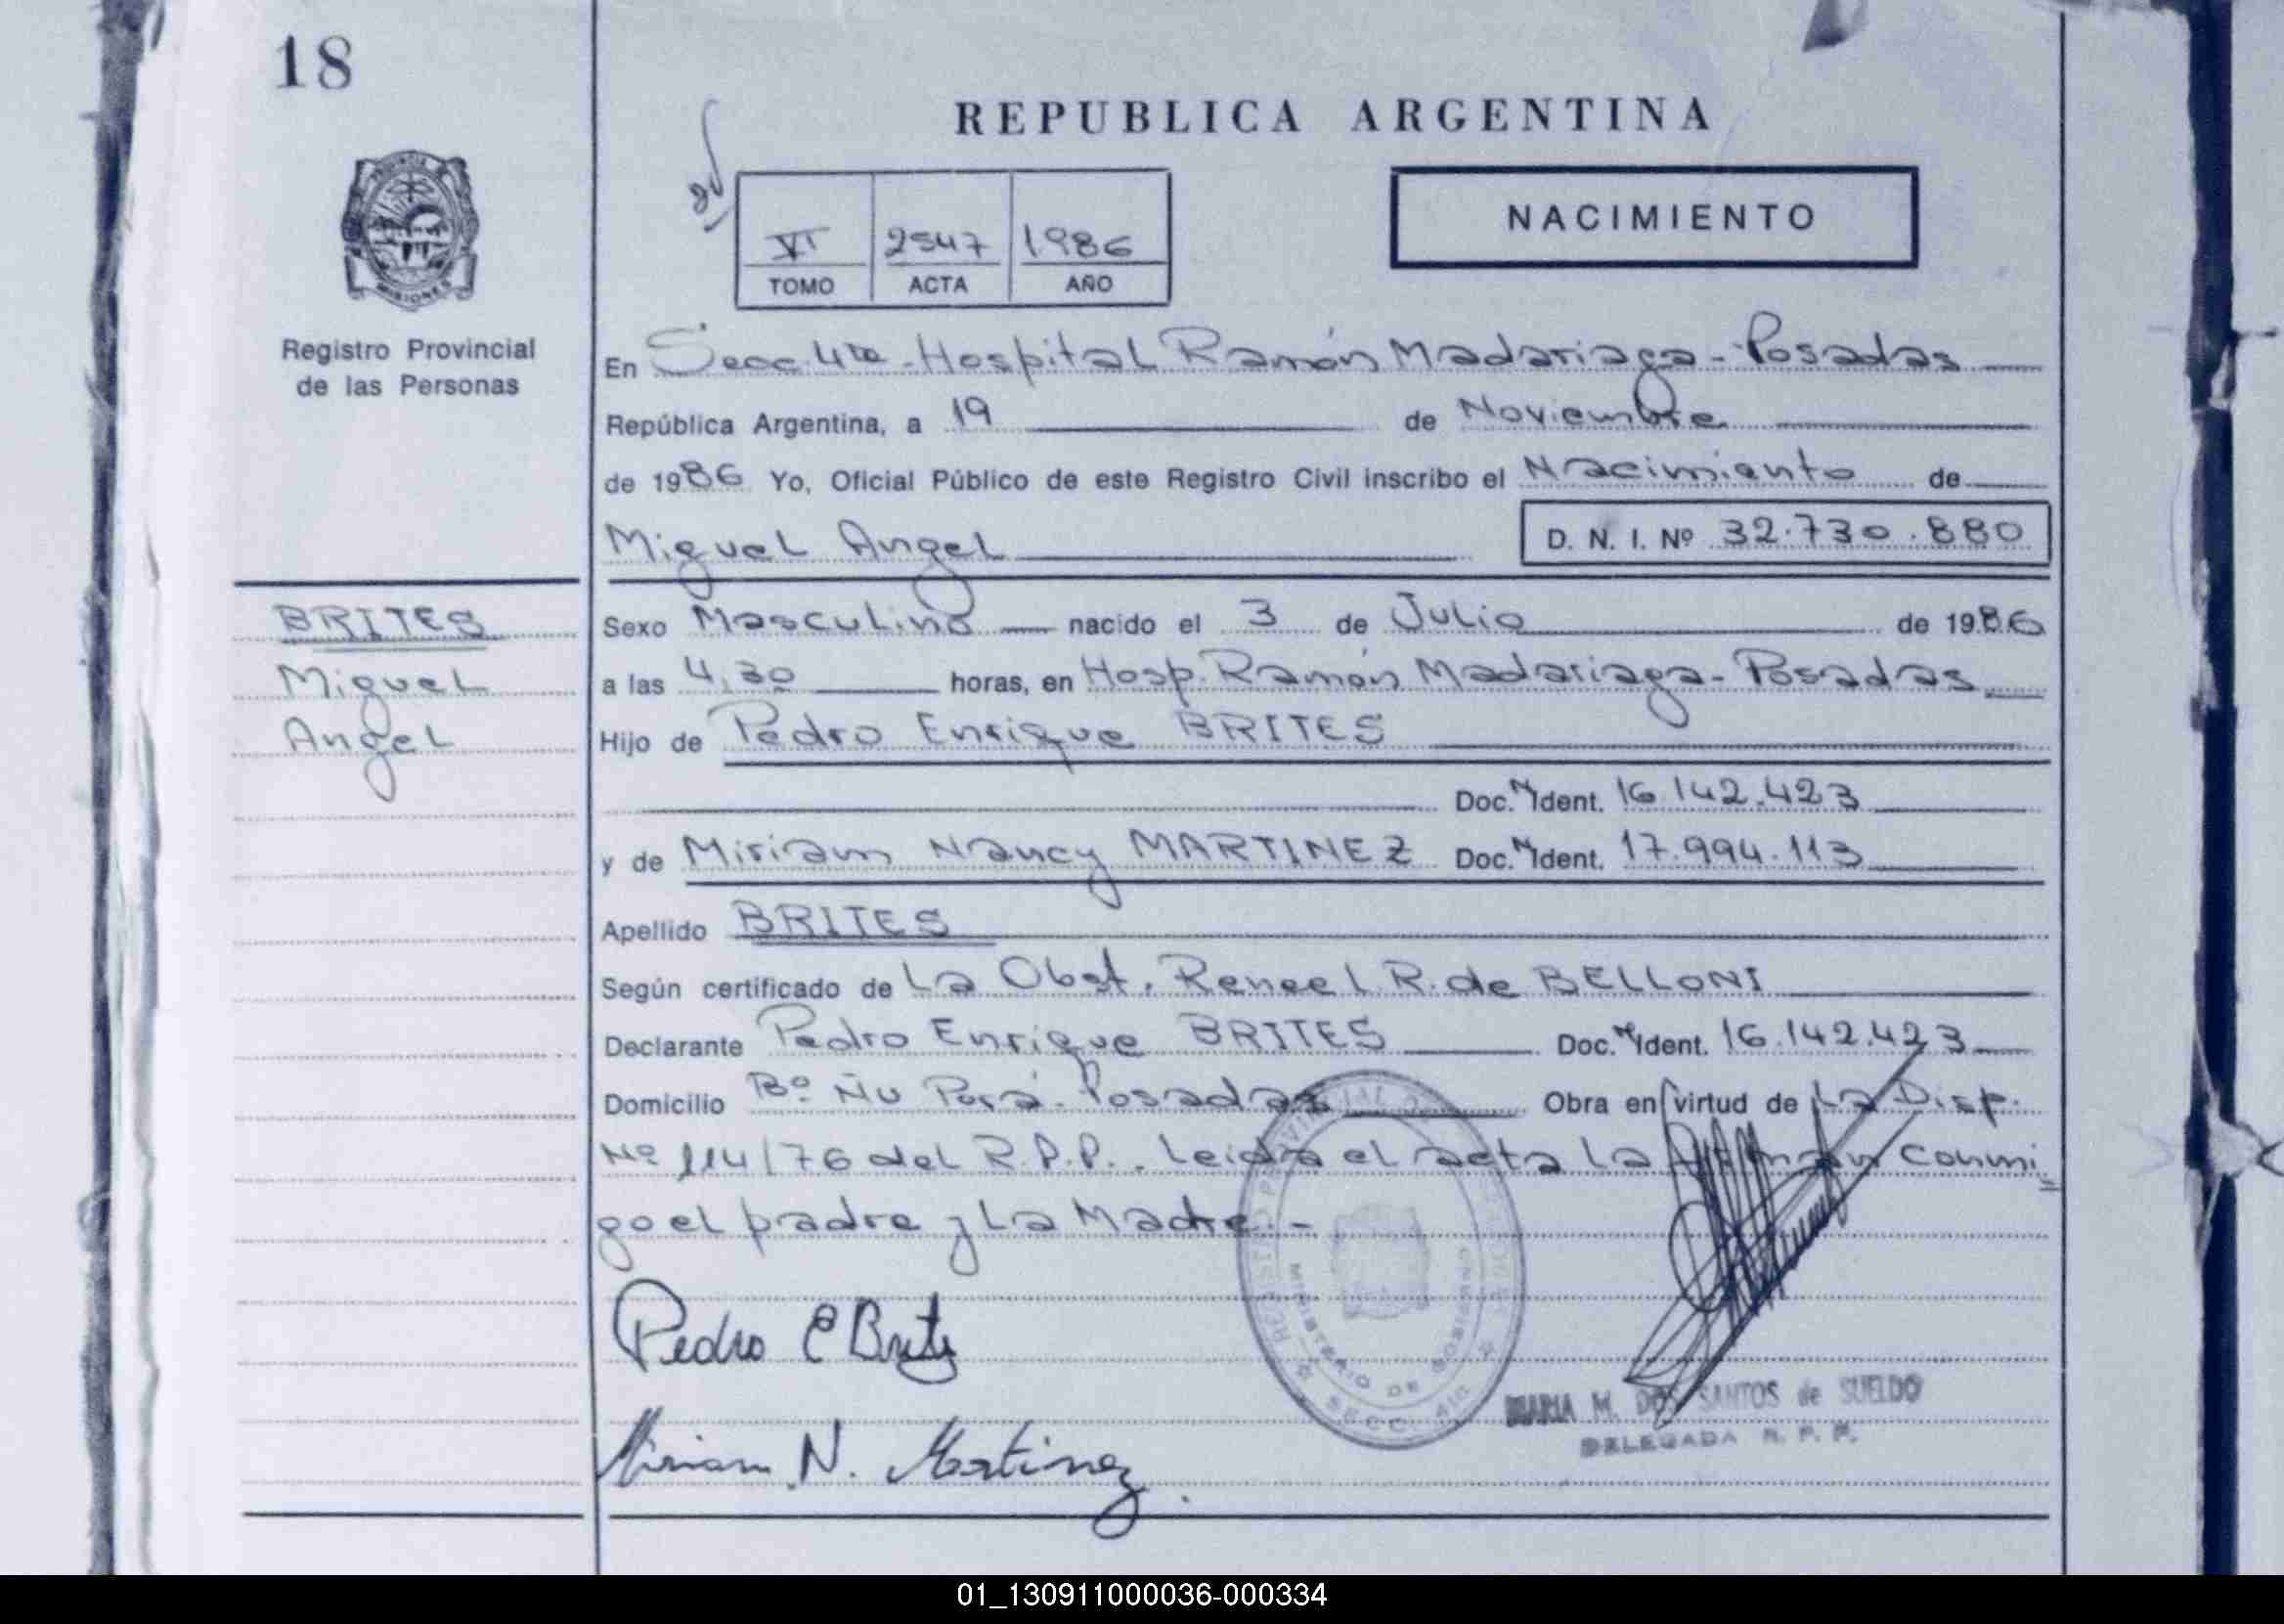 18
REPUBLICA ARGENTINA
PROVINCIA
MISIONES
Registro Provincial
de las Personas
VI 2547 1986
TOMO ACTA AÑO
NACIMIENTO
En Secc. 4ta - Hospital Ramón Madariaga - Posadas
República Argentina, a 19 de Noviembre
de 1986 Yo, Oficial Público de este Registro Civil inscribo el Nacimiento de
Miguel Angel D. N. I. Nº 32.730.880
BRITES
Miguel
Angel
Sexo Masculino nacido el 3 de Julio de 1986
a las 4,30 horas, en Hosp. Ramón Madariaga - Posadas
Hijo de Pedro Enrique BRITES
Doc. Ident. 16.142.423
y de Miriam Nancy MARTINEZ Doc. Ident. 17.994.113
Apellido BRITES
Según certificado de La Obst. Renee L R. de BELLONI
Declarante Pedro Enrique BRITES Doc. Ident. 16.142.423
Domicilio Bº Ñu Porá - Posadas Obra en virtud de La Disp.
Nº 114/76 del R.P.P.. Leida el acta la firman conmi
go el padre y La Madre. -
Pedro E Brites
Miriam N. Martinez
REGISTRO PROVINCIAL DE
MINISTERIO DE GOBIERNO
SECC. 4ta
MARIA M. DOS SANTOS de SUELDO
DELEGADA R. P. P.
01_130911000036-000334